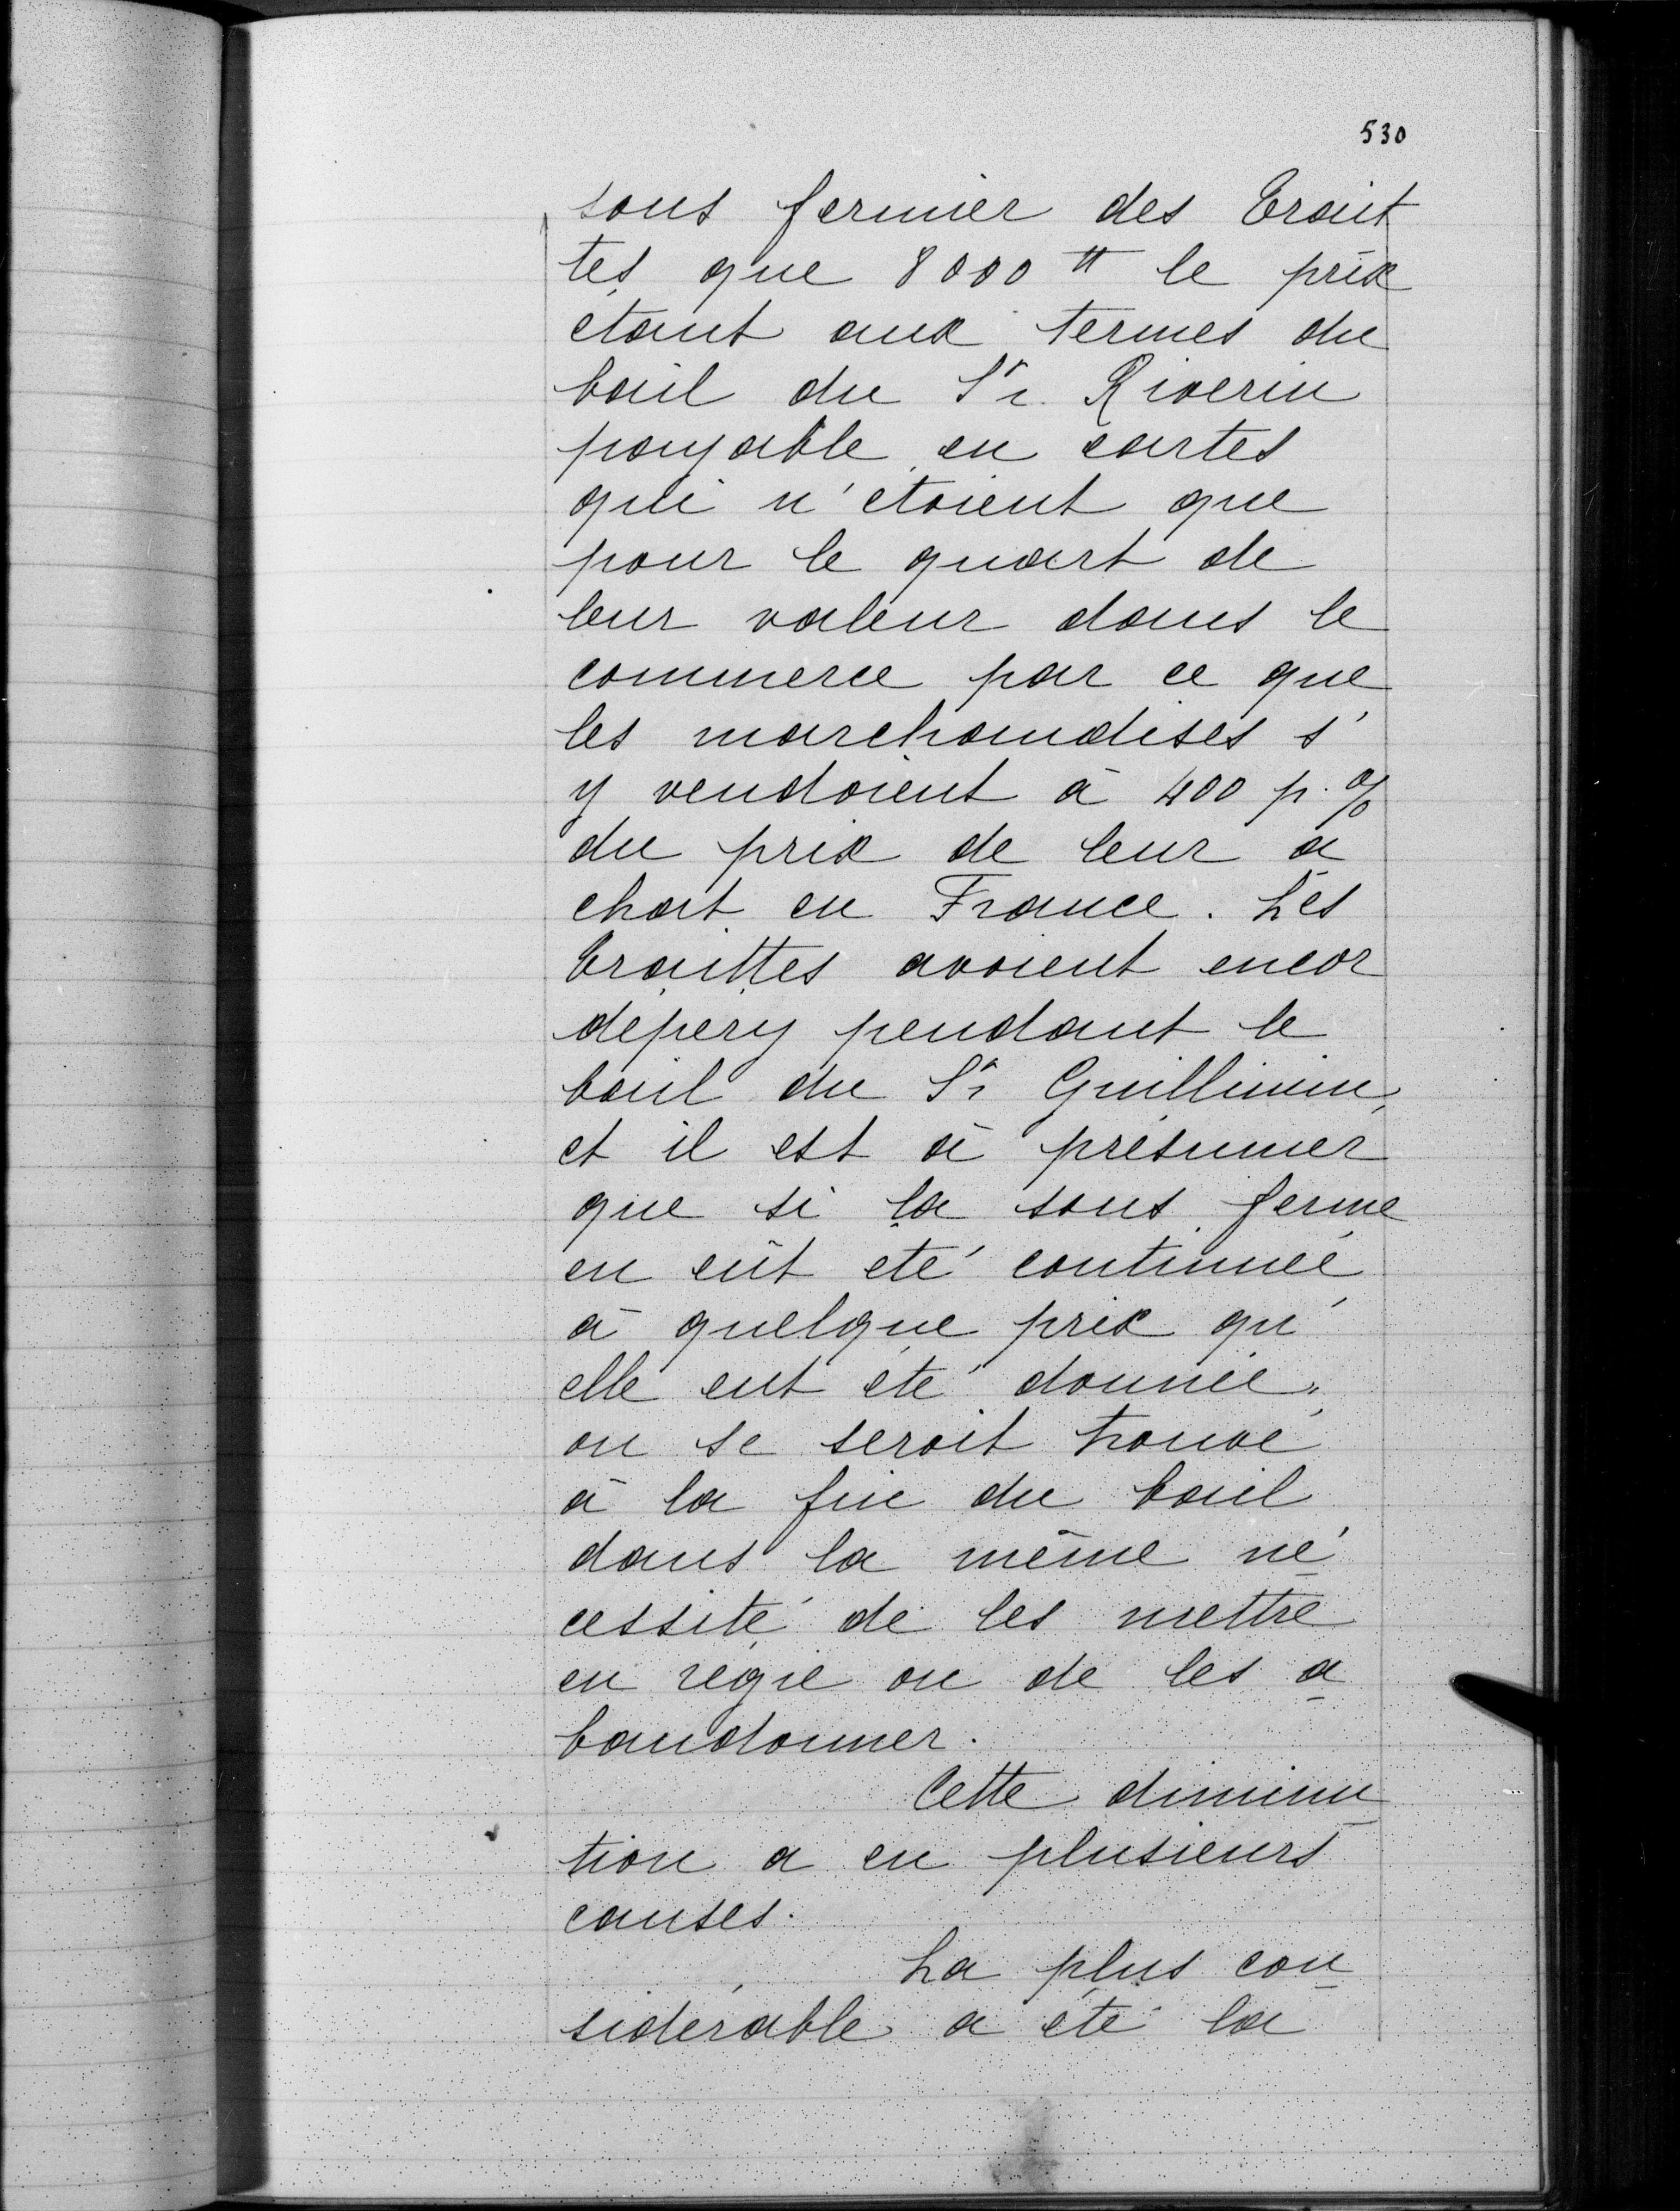 530
sous fermier des Trait
tes que 8000 ₶ le prix
etant aux termes du
bail du Sr. Riverin
payable en cartes
qui n'etoient que
pour le quart de
leur valeur dans le
commerce par ce que
les marchandises s'
y vendoient à 400 p. %
du prix de leur a
chat en France. Les
traittes avoient encor
depery pendant le
bail du Sr Guillimin,
et il est à présumer
que si la sous ferme
en eût eté continuée
à quelque prix qu'
elle eut été donnée,
on se seroit trouvé
à la fin du bail
dans la même né
cessité de les mettre
en régie ou de les a
bandonner.
Cette diminu
tion a eu plusieurs
causes.
La plus con
sidérable a été la